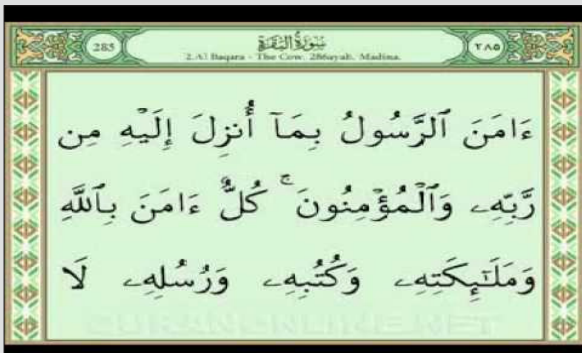 285 سُورَةُ الْبَقَرَةِ ٢٨٥
2.Al Baqara - The Cow, 286ayah, Madina.
ءَامَنَ ٱلرَّسُولُ بِمَآ أُنزِلَ إِلَيْهِ مِن
رَّبِّهِۦ وَٱلْمُؤْمِنُونَ ۚ كُلٌّ ءَامَنَ بِٱللَّهِ
وَمَلَـٰٓئِكَتِهِۦ وَكُتُبِهِۦ وَرُسُلِهِۦ لَا
QURANONLINE.NET